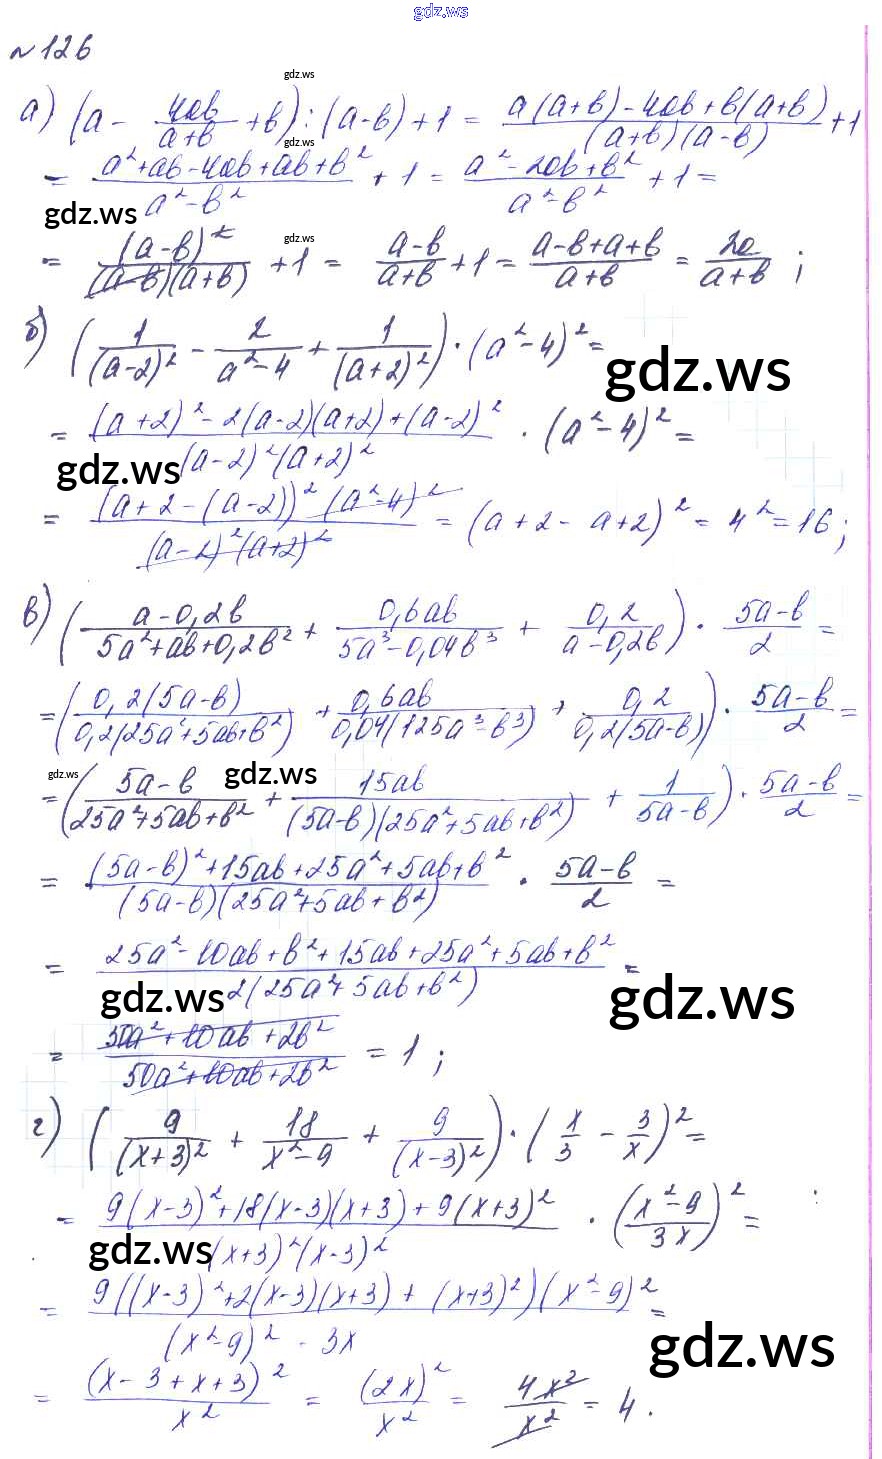 gdz.ws
№126
а) (a - 4ab/(a+b) + b) : (a-b) + 1 = (a(a+b) - 4ab + b(a+b))/((a+b)(a-b)) + 1
gdz.ws
gdz.ws
= (a²+ab-4ab+ab+b²)/(a²-b²) + 1 = (a²-2ab+b²)/(a²-b²) + 1 =
gdz.ws
gdz.ws
= (a-b)²/((a-b)(a+b)) + 1 = (a-b)/(a+b) + 1 = (a-b+a+b)/(a+b) = 2a/(a+b) ;
б) (1/(a-2)² - 2/(a²-4) + 1/(a+2)²) · (a²-4)² =
gdz.ws
= ((a+2)² - 2(a-2)(a+2) + (a-2)²)/((a-2)²(a+2)²) · (a²-4)² =
gdz.ws
= ((a+2-(a-2))² (a²-4)²)/((a-2)²(a+2)²) = (a+2-a+2)² = 4² = 16 ;
в) ((a-0,2b)/(5a²+ab+0,2b²) + 0,6ab/(5a³-0,04b³) + 0,2/(a-0,2b)) · (5a-b)/2 =
= (0,2(5a-b)/(0,2(25a²+5ab+b²)) + 0,6ab/(0,04(125a³-b³)) + 0,2/(0,2(5a-b))) · (5a-b)/2 =
gdz.ws gdz.ws
= ((5a-b)/(25a²+5ab+b²) + 15ab/((5a-b)(25a²+5ab+b²)) + 1/(5a-b)) · (5a-b)/2 =
= ((5a-b)²+15ab+25a²+5ab+b²)/((5a-b)(25a²+5ab+b²)) · (5a-b)/2 =
= (25a²-10ab+b²+15ab+25a²+5ab+b²)/(2(25a²+5ab+b²)) =
gdz.ws gdz.ws
= (50a²+10ab+2b²)/(50a²+10ab+2b²) = 1 ;
г) (9/(x+3)² + 18/(x²-9) + 9/(x-3)²) · (x/3 - 3/x)² =
= (9(x-3)²+18(x-3)(x+3)+9(x+3)²)/((x+3)²(x-3)²) · ((x²-9)/3x)² =
gdz.ws
= (9((x-3)²+2(x-3)(x+3)+(x+3)²)(x²-9)²)/((x²-9)² · 3x) =
gdz.ws
= (x-3+x+3)²/x² = (2x)²/x² = 4x²/x² = 4 .